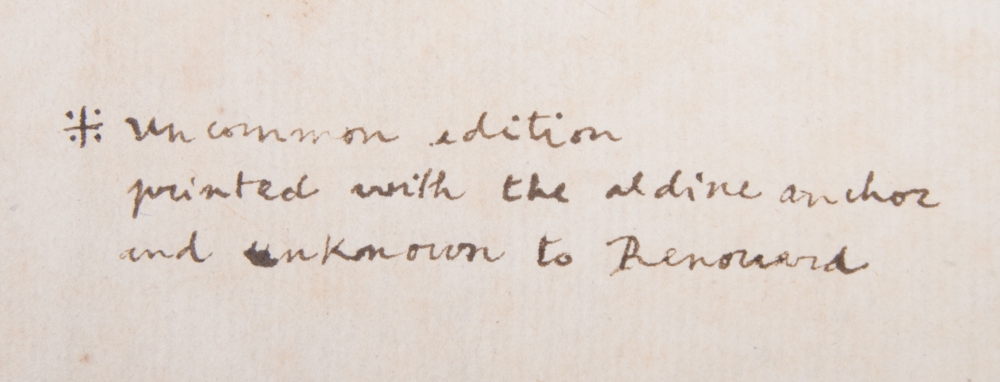 ※ uncommon edition
printed with the aldine anchor
and unknown to Renouard